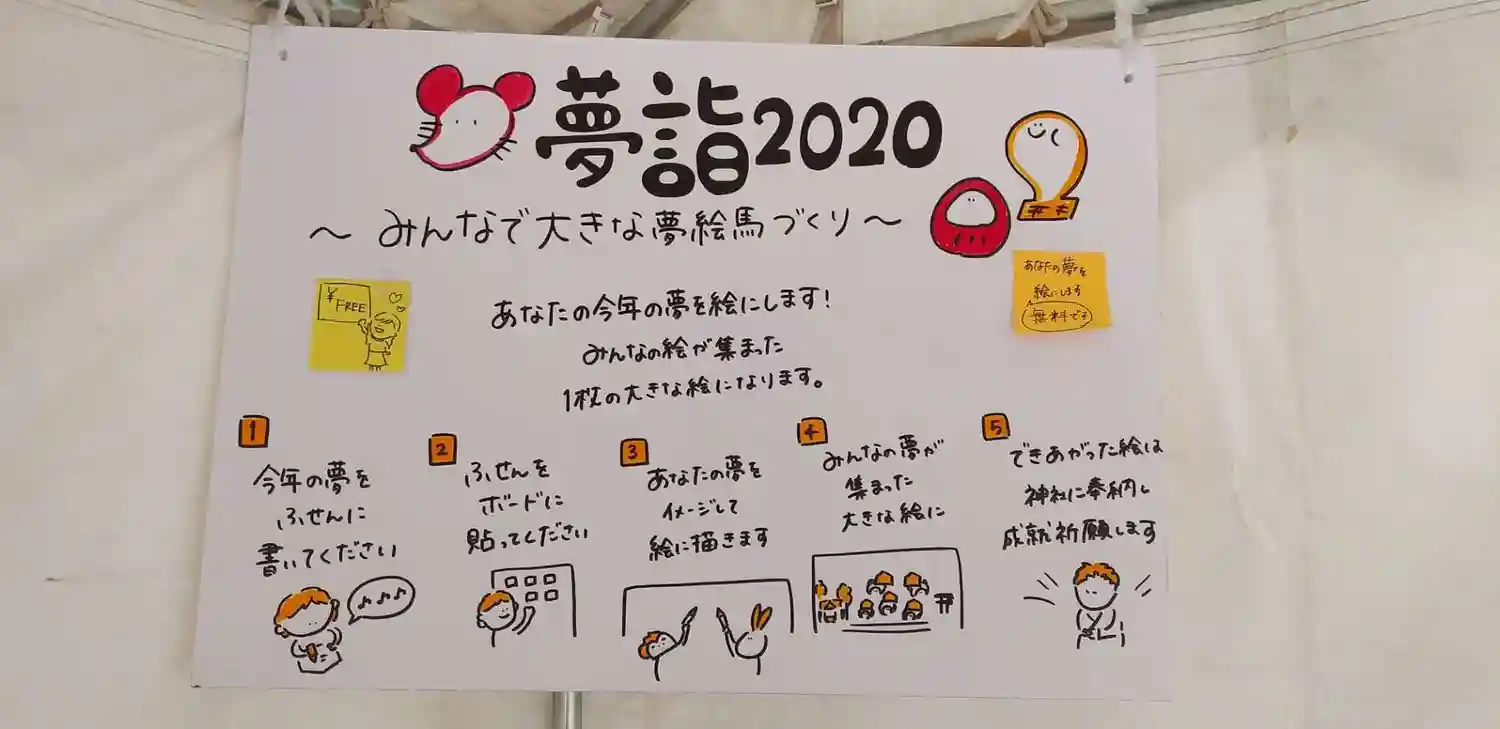 夢詣2020
～みんなで大きな夢絵馬づくり～
¥
FREE
あなたの今年の夢を絵にします!
みんなの絵が集まった
1枚の大きな絵になります。
あなたの夢を
絵にします
無料です
1
今年の夢を
ふせんに
書いてください
2
ふせんを
ボードに
貼ってください
3
あなたの夢を
イメージして
絵に描きます
4
みんなの夢が
集まった
大きな絵に
5
できあがった絵は
神社に奉納し
成就祈願します